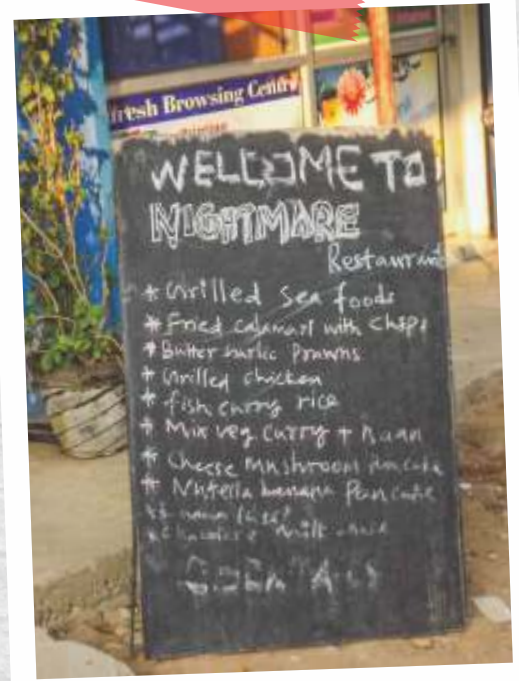 fresh Browsing Centre
WELCOME TO
NIGHTMARE
Restaurant
* Grilled Sea foods
* Fried calamari with Chips
* Butter Garlic Prawns
* Grilled chicken
* fish curry rice
* Mix veg curry + Naan
* Cheese Mushroom Pancake
* Nutella banana Pancake
* Chocolate Milk shake